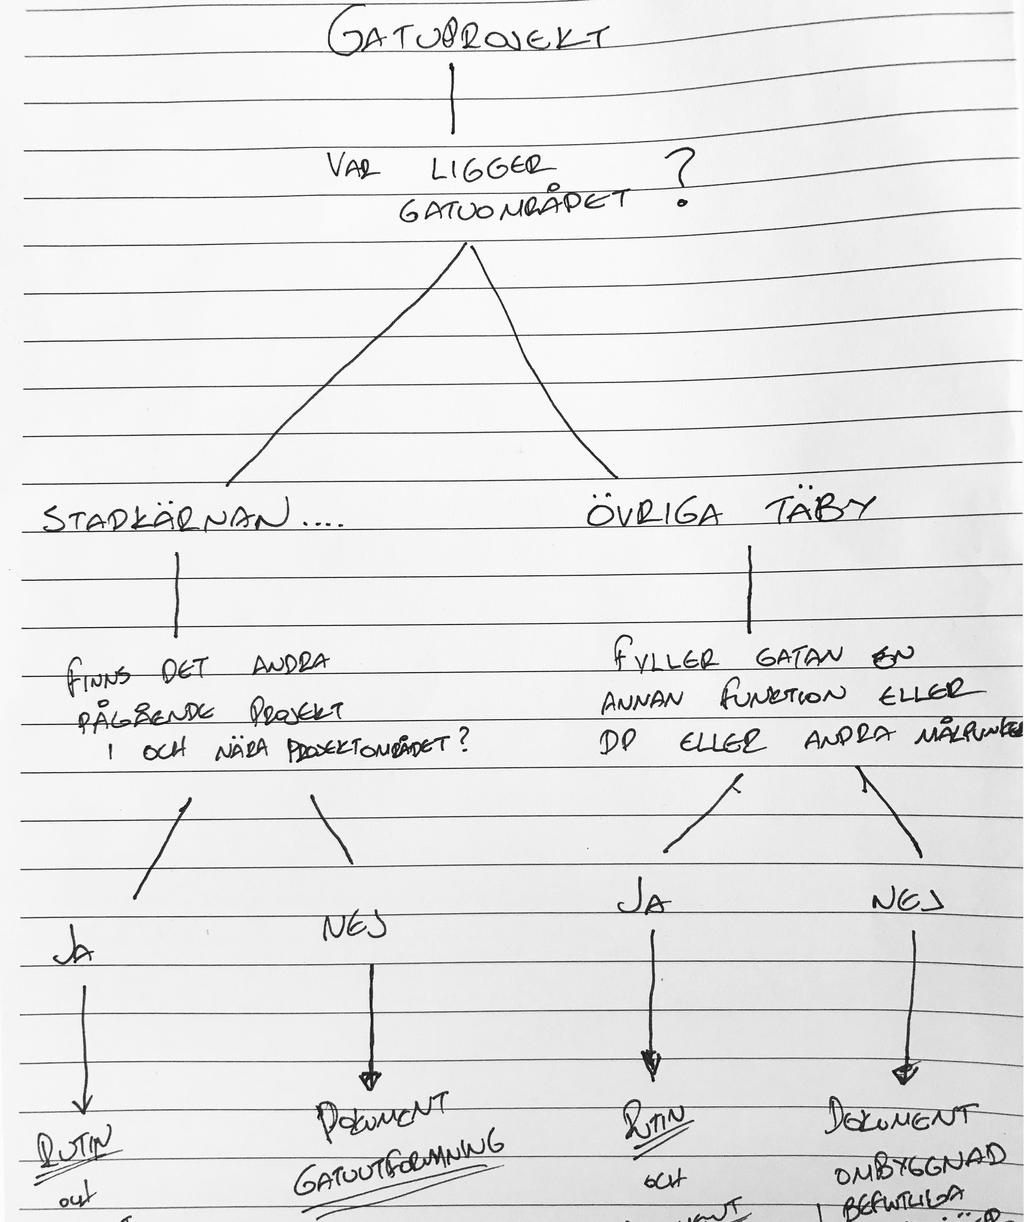 GATUPROJEKT
VAR LIGGER
GATUOMRÅDET ?
STADKÄRNAN....
ÖVRIGA TÄBY
FINNS DET ANDRA
PÅGÅENDE PROJEKT
I OCH NÄRA PROJEKTOMRÅDET?
FYLLER GATAN EN
ANNAN FUNKTION ELLER
DP ELLER ANDRA MÅLPUNKTER
JA
NEJ
JA
NEJ
RUTIN
och
DOKUMENT
GATUUTFORMNING
RUTIN
OCH
DOKUMENT
OMBYGGNAD
BEFINTLIGA